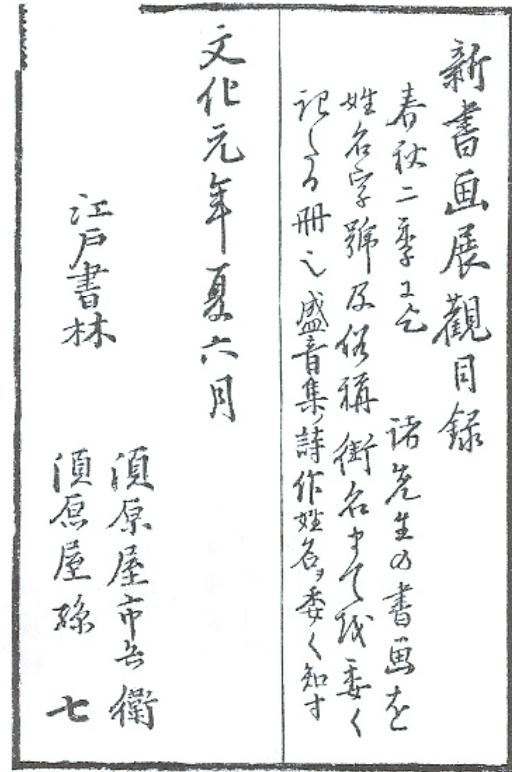 新書画展觀目録
春秋二季に乞 諸先生の書画を
姓名字號及俗稱 街名まて 委く
記したる册也 盛音集ノ詩作姓名ヲ委く知す
文化元年夏六月
江戸書林
須原屋市兵衛
須原屋孫七